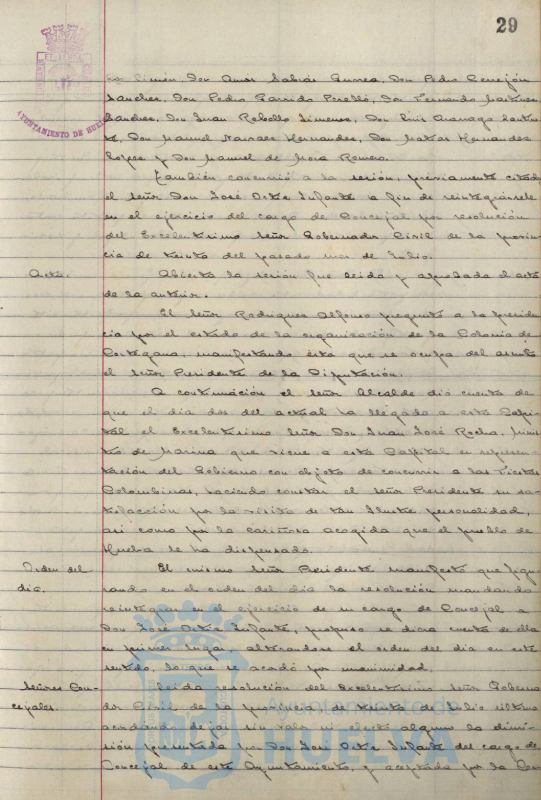 29
AYUNTAMIENTO DE HUELVA
Simón, Don Amós Sabrás Gurrea, Don Pedro Cerrejón
Sanchez, Don Pedro Garrido Perelló, Don Fernando Martinez
Sanchez, Don Juan Rebollo Jimenez, Don Luis
Don Manuel Narvaez Hernandez, Don Matias Hernandez
Lopez y Don Manuel de Mora Romero.
Tambien concurrió a la sesión, previamente citado
el señor Don José Ortiz Infante a fin de reintegrársele
en el ejercicio del cargo de Concejal por resolución
del Excelentísimo Señor Gobernador Civil de la provin-
cia de treinta del pasado mes de Julio.
Acta.
Abierta la sesión fue leida y aprobada el acta
de la anterior.
El Señor Rodriguez Alfonso preguntó a la presiden-
cia por el estado de la organización de la Colonia de
Cortegana, manifestando ésta que se ocupa del asunto
el señor Presidente de la Diputación.
A continuación el señor Alcalde dió cuenta de
que el dia dos del actual ha llegado a esta Capi-
tal el Excelentísimo Señor Don Juan José Rocha, Minis-
tro de Marina que viene a esta Capital en represen-
tación del Gobierno con objeto de concurrir a las Fiestas
Colombinas, haciendo constar el señor Presidente su sa-
tisfacción por la visita de tan ilustre personalidad,
asi como por la cariñosa acogida que el pueblo de
Huelva le ha dispensado.
Orden del
dia.
El mismo Señor Presidente manifestó que figu-
rando en el orden del dia la resolución mandando
reintegrar en el ejercicio de su cargo de Concejal a
Don José Ortiz Infante, propuso se diera cuenta de ella
en primer lugar alterandose el orden del dia en este
sentido, lo que se acordó por unanimidad.
Señores Con-
cejales.
Leida resolución del Excelentísimo Señor Goberna-
dor Civil de la provincia de treinta de Julio último
acordando dejar sin valor ni efecto alguno la dimi-
sión presentada por Don José Ortiz Infante del cargo de
Concejal de este Ayuntamiento, y aceptada por la Co-
Ayuntamiento de
HUELVA